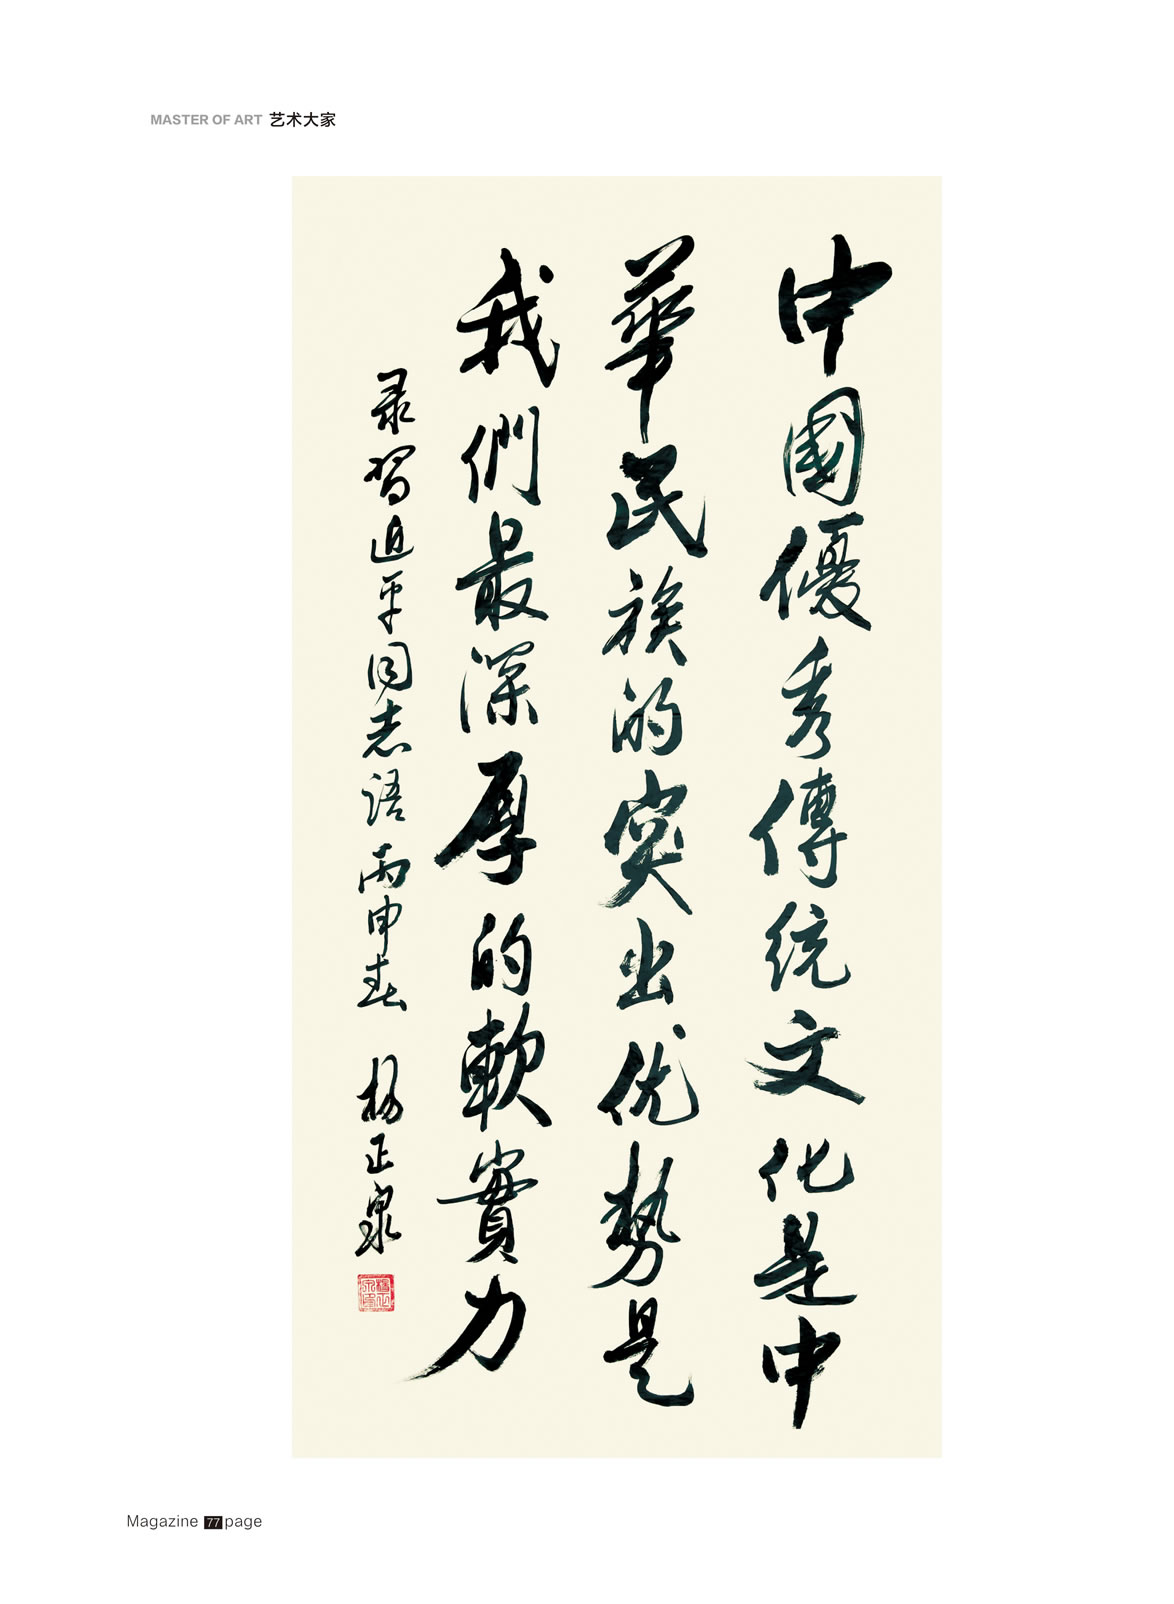 MASTER OF ART 艺术大家
中國優秀傳统文化是中
華民族的突出优势是
我們最深厚的軟實力
录習近平同志语 丙申春 杨正泉
Magazine 77 page